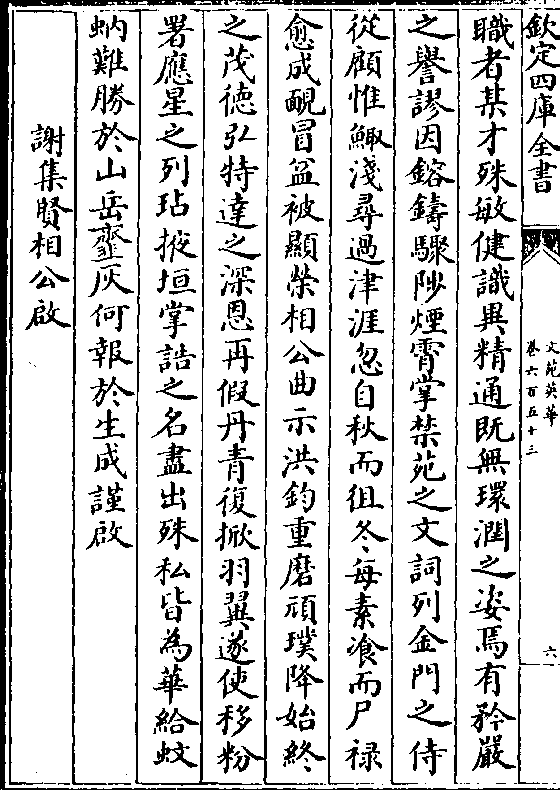 欽定四庫全書
文苑英華
卷六百五十三
六
職者某才殊敏健識異精通既無環潤之姿焉有矜嚴
之譽謬因鎔鑄驟陟煙霄掌禁苑之文詞列金門之侍
從顧惟鯫淺尋過津涯忽自秋而徂冬每素飡而尸禄
愈成靦冒益被顯榮相公曲示洪鈞重磨頑璞降始終
之茂徳弘特達之深恩再假丹青復掀羽翼遂使移粉
署應星之列玷掖垣掌誥之名盡出殊私皆為華給蚊
蚋難勝於山岳虀灰何報於生成謹啟
謝集賢相公啟